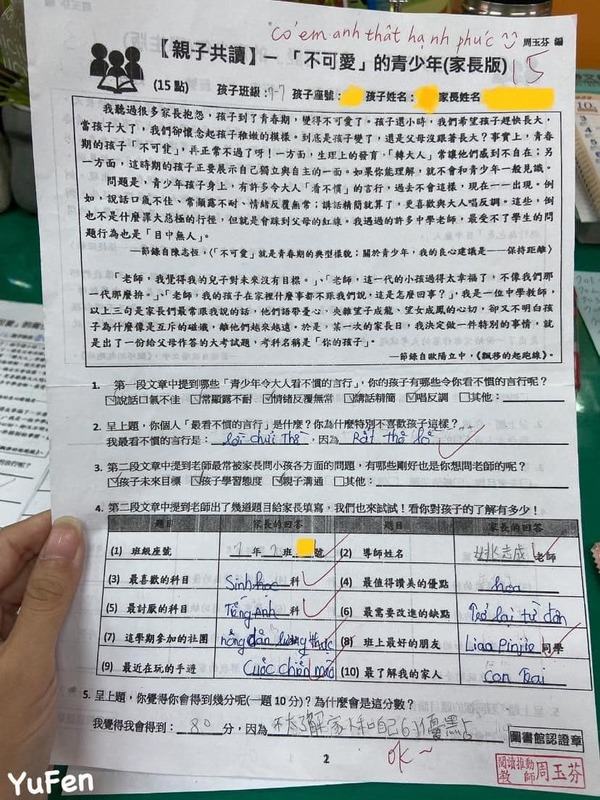 có em anh thât hạnh phúc
周玉芬 編
【親子共讀】－「不可愛」的青少年(家長版)
15
(15 點) 孩子班級：7-7 孩子座號： 孩子姓名： 家長姓名
我聽過很多家長抱怨，孩子到了青春期，變得不可愛了。孩子還小時，我們希望孩子趕快長大，
當孩子大了，我們卻懷念起孩子稚嫩的模樣。到底是孩子變了，還是父母沒跟著長大？事實上，青春
期的孩子「不可愛」，再正常不過了呀！一方面，生理上的發育，「轉大人」常讓他們感到不自在；另
一方面，這時期的孩子正要展示自己獨立與自主的一面。如果你能理解，就不會和青少年一般見識。
問題是，青少年孩子身上，有許多令大人「看不慣」的言行，過去不會這樣，現在一一出現。例
如，說話口氣不佳、常頂露不耐、情緒反覆無常；講話精簡就算了，更喜歡與大人唱反調。這些，倒
也不是什麼罪大惡極的行徑，但就是會踩到父母的紅線。我遇過的許多中學老師，最受不了學生的問
題行為也是「目中無人」。
—節錄自陳志恆，〈「不可愛」就是青春期的典型樣貌：關於青少年，我的良心建議是——保持距離〉
「老師，我覺得我的兒子對未來沒有目標。」、「老師，這一代的小孩過得太幸福了，不像我們那
一代那麼拚。」、「老師，我的孩子在家裡什麼事都不跟我們說，這是怎麼回事？」，我是一位中學教師，
以上三句是家長們最常跟我說的話，他們語帶憂心，夾雜望子成龍、望女成鳳的心切，卻又不明白孩
子為什麼像是互斥的磁鐵，離他們越來越遠。於是，某一次的家長日，我決定做一件特別的事情，就
是出了一份給父母作答的大考試題，考科名稱是「你的孩子」。
—節錄自歐陽立中，《飄移的起跑線》。
1. 第一段文章中提到哪些「青少年令大人看不慣的言行」，你的孩子有哪些令你看不慣的言行呢？
☑說話口氣不佳 □常顯露不耐 ☑情緒反覆無常 □講話精簡 ☑唱反調 □其他：
2. 呈上題，你個人「最看不慣的言行」是什麼？你為什麼特別不喜歡孩子這樣？
我最看不慣的言行是：lời chửi thề，因為 Rất thô lỗ
3. 第二段文章中提到老師最常被家長問小孩各方面的問題，有哪些剛好也是你想問老師的呢？
☑孩子未來目標 ☑孩子學習態度 ☑親子溝通 □其他：
4. 第二段文章中提到老師出了幾道題目給家長填寫，我們也來試試！看你對孩子的了解有多少！
題目 家長的回答 題目 家長的回答
(1) 班級座號 7年7班 號 (2) 導師姓名 姚志成老師
(3) 最喜歡的科目 Sinh học科 (4) 最值得讚美的優點 hòa
(5) 最討厭的科目 Tiếng Anh科 (6) 最需要改進的缺點 Trở lại từ dân
(7) 這學期參加的社團 nông dân lương thực (8) 班上最好的朋友 Liao Pinjie同學
(9) 最近在玩的手遊 Cuộc chiến mèo (10) 最了解我的家人 con trai
5. 呈上題，你覺得你會得到幾分呢(一題 10 分)？為什麼會是這分數？
我覺得我會得到：80分，因為 不太了解家人和自己的優點
圖書館認證章
ok~
2
閱讀推動教師周玉芬
YuFen